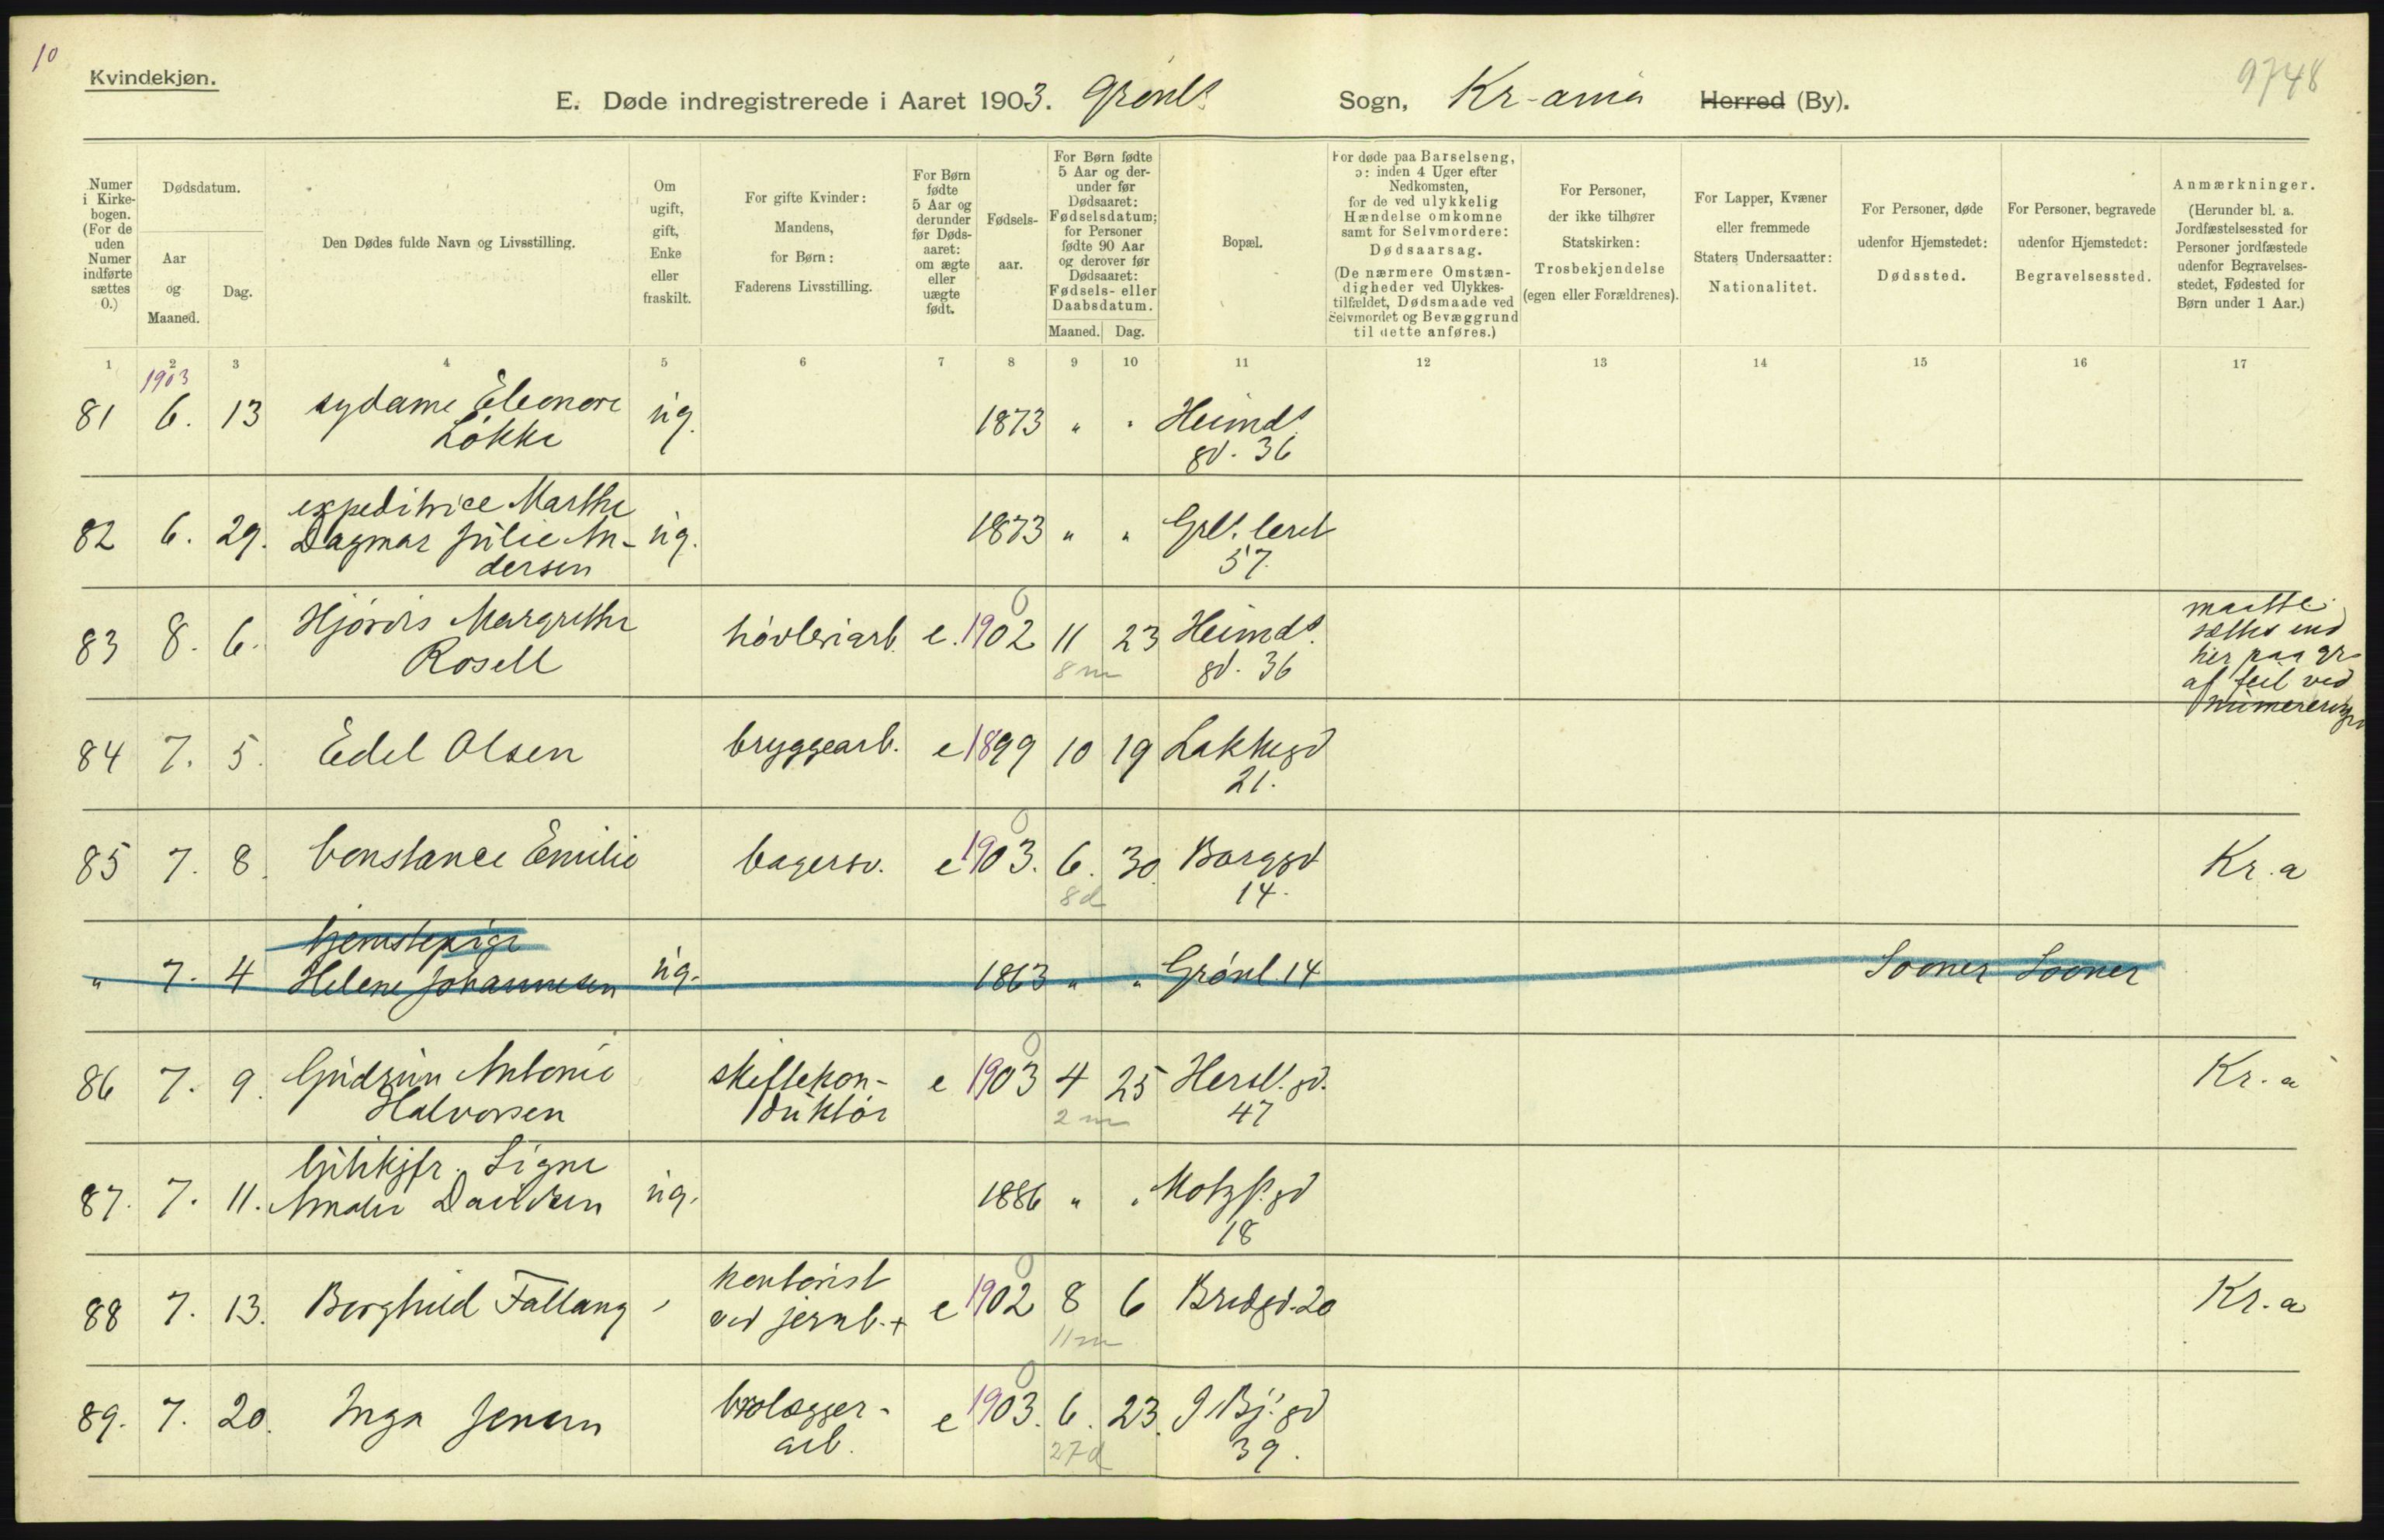 10
Kvindekjøn.
9748
E. Døde indregistrerede i Aaret 1903. Grønls Sogn, Kr-ania Herred (By).
Numer i Kirke-bogen. (For de uden Numer indførte sættes 0.)
Dødsdatum.
Aar og Maaned.
Dag.
Den Dødes fulde Navn og Livsstilling.
Om ugift, gift, Enke eller fraskilt.
For gifte Kvinder: Mandens, for Børn: Faderens Livsstilling.
For Børn fødte 5 Aar og derunder før Døds-aaret: om ægte eller uægte født.
Fødsels-aar.
For Børn fødte 5 Aar og der-under før Dødsaaret: Fødselsdatum; for Personer fødte 90 Aar og derover før Dødsaaret: Fødsels- eller Daabsdatum.
Maaned. Dag.
Bopæl.
For døde paa Barselseng, ɔ: inden 4 Uger efter Nedkomsten, for de ved ulykkelig Hændelse omkomne samt for Selvmordere: Dødsaarsag. (De nærmere Omstæn-digheder ved Ulykkes-tilfældet, Dødsmaade ved Selvmordet og Bevæggrund til dette anføres.)
For Personer, der ikke tilhører Statskirken: Trosbekjendelse (egen eller Forældrenes).
For Lapper, Kvæner eller fremmede Staters Undersaatter: Nationalitet.
For Personer, døde udenfor Hjemstedet: Dødssted.
For Personer, begravede udenfor Hjemstedet: Begravelsessted.
Anmærkninger. (Herunder bl. a. Jordfæstelsessted for Personer jordfæstede udenfor Begravelses-stedet, Fødested for Børn under 1 Aar.)
1 2 3 4 5 6 7 8 9 10 11 12 13 14 15 16 17
1903
81 6. 13 sydame Eleonore ug. 1873 " " Heimds
Løkke gd. 36
82 6. 29. expeditrice Marthe
Dagmar Julie An- ug. 1873 " " Grl. leret
dersen 57.
83 8. 6. Hjørdis Margrethe høvleriarb. e. 1902 11 23 Heimds. maatte
Rosell 8 m gd. 36 sættes ind
her paa gr
af feil ved
numerering
84 7. 5. Edel Olsen bryggearb. e 1899 10 19 Lakkegd
21.
85 7. 8. Constance Emilie bagersv. e 1903. 6. 30. Borggd Kr.a
8 d 14.
" 7. 4 tjenstepige
Helene Johannesen ug. 1863 " " Grønl. 14 Sooner Sooner
86 7. 9. Gudrun Antonie skiftekon- e 1903 4 25 Hersl. gd. Kr.a
Halvorsen duktør 2 m 47
87. 7. 11. Signe
Amalie Davidsen ug. 1886 " " Motzf. gd
18
88 7. 13. Borghild Fallang kontorist
ved jernb. + e 1902 8 6 Bredgd. 20 Kr.a
11 m
89. 7. 20. Inga Jensen brolægger- e 1903. 6. 23. gd
arb. 27 d 39.